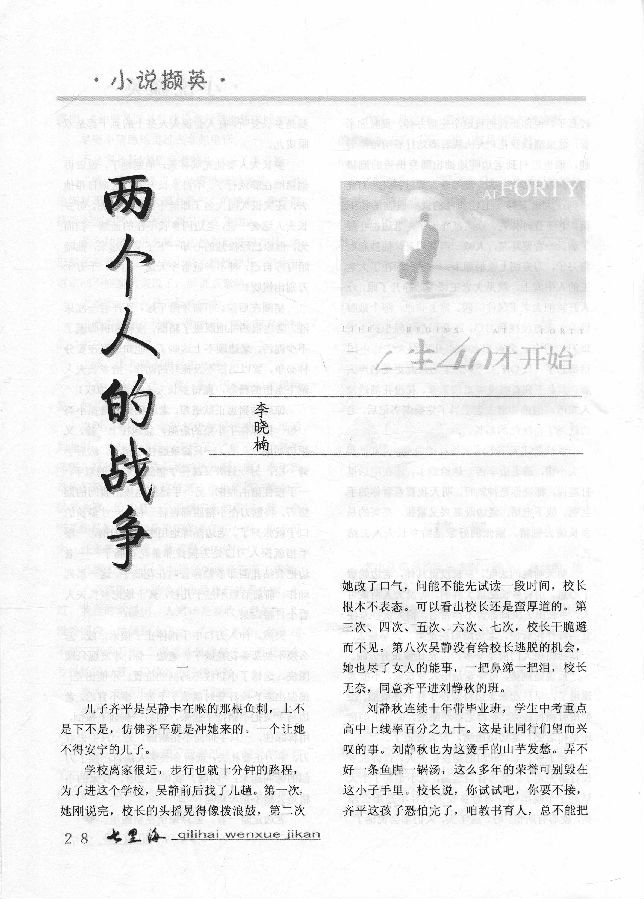 ·小说撷英·
两个人的战争
AT FORTY
人生40才开始
李晓楠
一
儿子齐平是吴静卡在喉的那根鱼刺,上不
是下不是,仿佛齐平就是冲她来的。一个让她
不得安宁的儿子。
学校离家很近,步行也就十分钟的路程,
为了进这个学校,吴静前后找了几趟。第一次,
她刚说完,校长的头摇晃得像拨浪鼓,第二次
她改了口气,问能不能先试读一段时间,校长
根本不表态。可以看出校长还是蛮厚道的。第
三次、四次、五次、六次、七次,校长干脆避
而不见。第八次吴静没有给校长逃脱的机会,
她也尽了女人的能事,一把鼻涕一把泪,校长
无奈,同意齐平进刘静秋的班。
刘静秋连续十年带毕业班,学生中考重点
高中上线率百分之九十。这是让同行们望而兴
叹的事。刘静秋也为这烫手的山芋发愁。弄不
好一条鱼腥一锅汤,这么多年的荣誉可别毁在
这小子手里。校长说,你试试吧,你要不接,
齐平这孩子恐怕完了,咱教书育人,总不能把
28 七里海 qilihai wenxue jikan